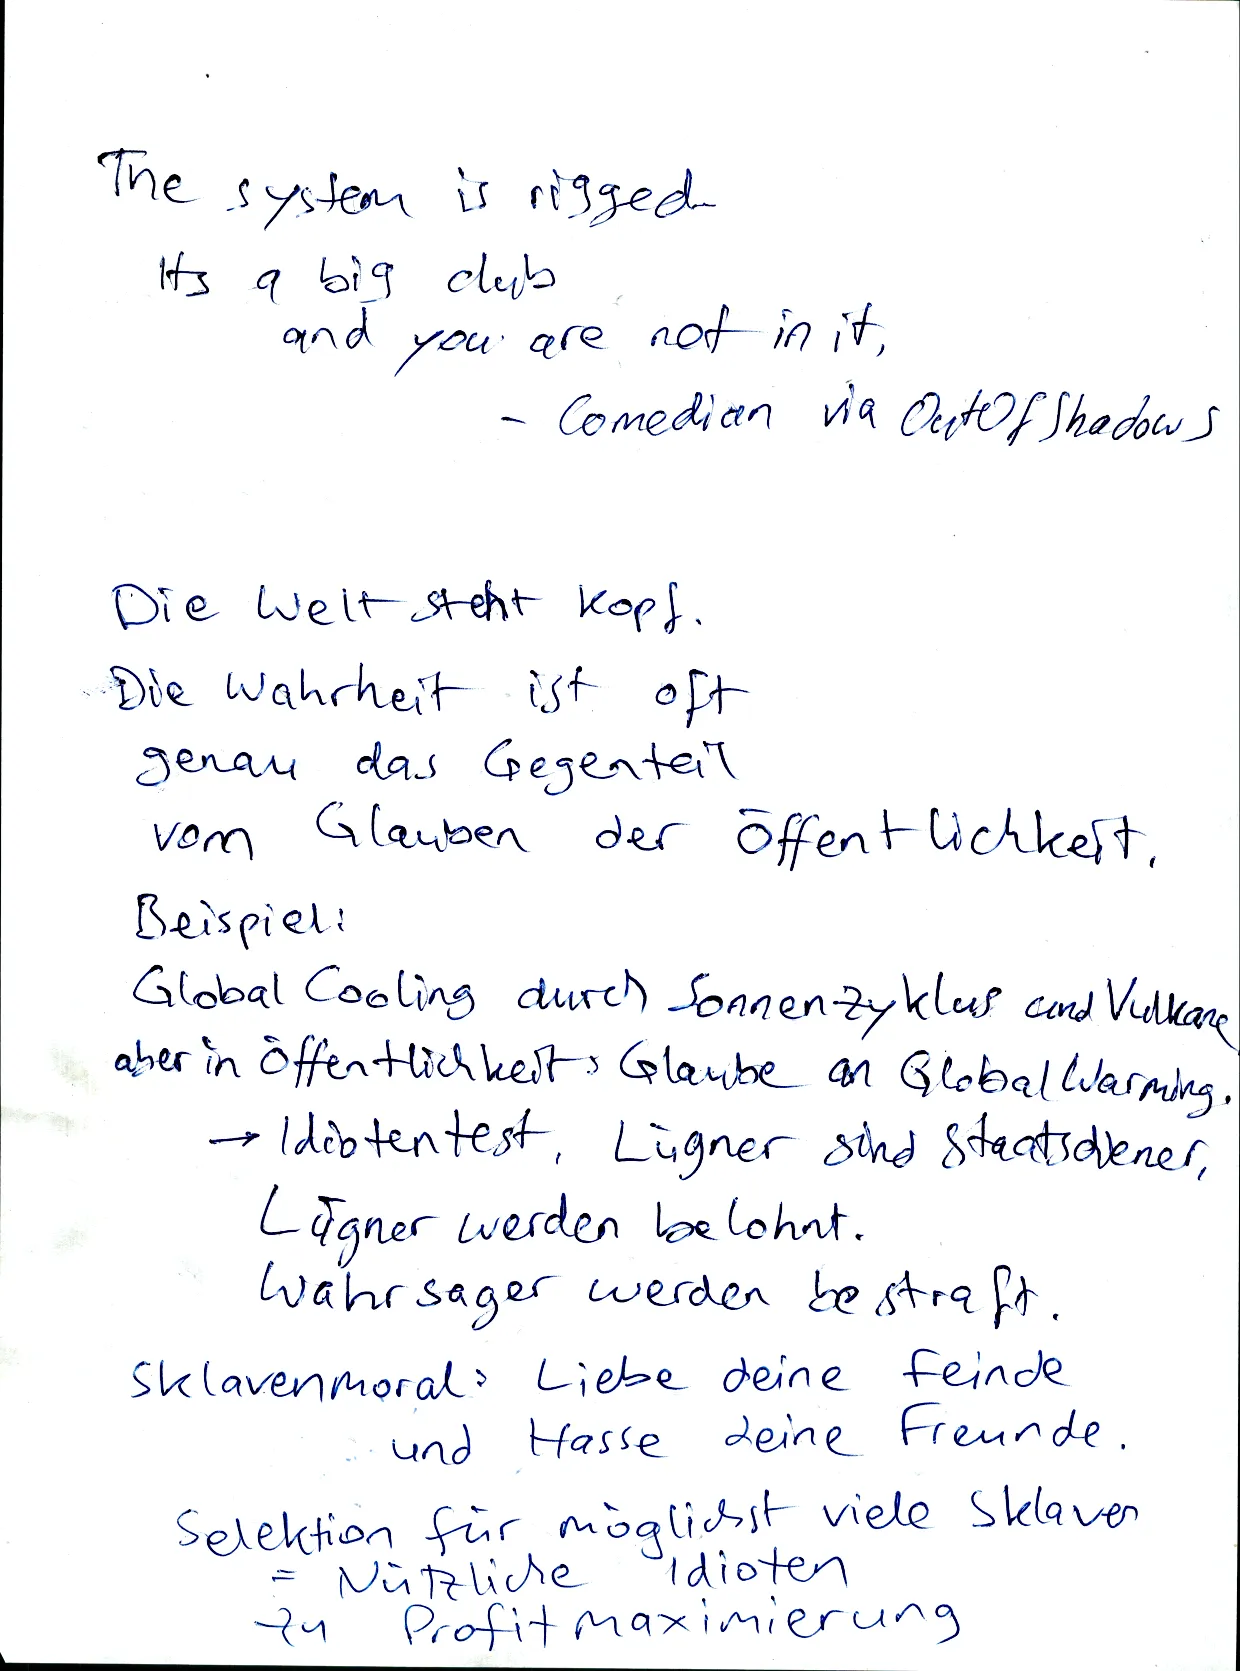 The system is rigged
Its a big club
and you are not in it,
- Comedian via OutOfShadows
Die Welt steht kopf.
Die Wahrheit ist oft
genau das Gegenteil
vom Glauben der Öffentlichkeit.
Beispiel:
Global Cooling durch Sonnenzyklus und Vulkane
aber in Öffentlichkeit: Glaube an Global Warming.
→ Idiotentest, Lügner sind Staatsdiener,
Lügner werden belohnt.
Wahrsager werden bestraft.
Sklavenmoral: Liebe deine Feinde
und Hasse deine Freunde.
Selektion für möglichst viele Sklaven
= Nützliche Idioten
zu Profitmaximierung